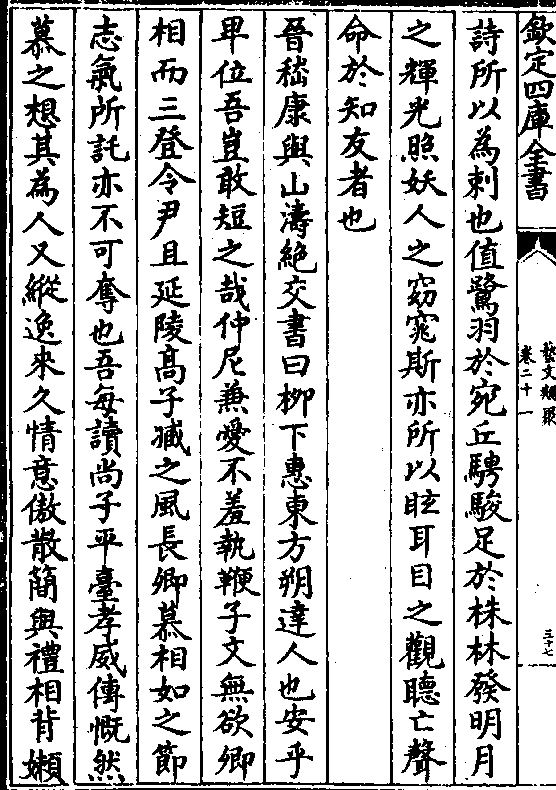 欽定四庫全書
藝文類聚
卷二十一
三十七
詩所以為刺也值鷺羽於宛丘騁駿足於株林發明月
之輝光照妖人之窈窕斯亦所以眩耳目之觀聽亡聲
命於知友者也
晉嵇康與山濤絶交書曰柳下惠東方朔達人也安乎
卑位吾豈敢短之哉仲尼兼愛不羞執鞭子文無欲卿
相而三登令尹且延陵髙子臧之風長卿慕相如之節
志氣所託亦不可奪也吾每讀尚子平臺孝威傳慨然
慕之想其為人又縱逸來久情意傲散簡與禮相背嬾